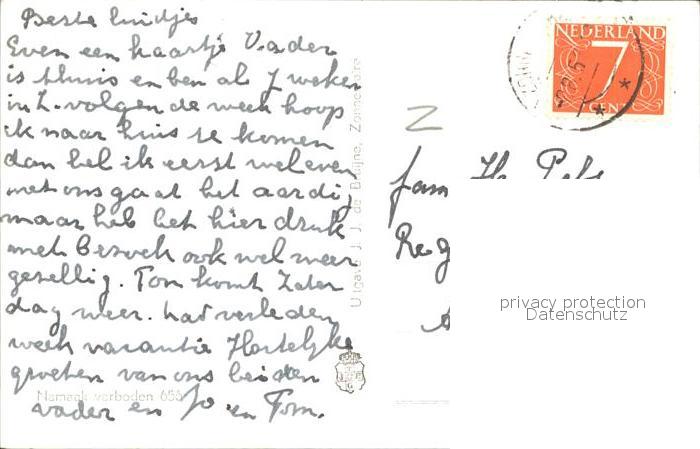 Beste luidjes
Even een kaartje Vader
is thuis en ben al 7 weken
in Z. volgen de week hoop
ik naar huis te komen
dan bel ik eerst wel even
met ons gaat het aardig
maar heb het hier druk
met bezoek ook wel weer
gezellig. Ton komt Zater
dag weer. had verleden
week vacantie Hartelijke
groeten van ons beiden
vader en Jo en Tom.
Namaak verboden 653
Uitgave J. J. de Bruijne, Zonnemaire
NEDERLAND
7
CENT
Z
fam
privacy protection
Datenschutz